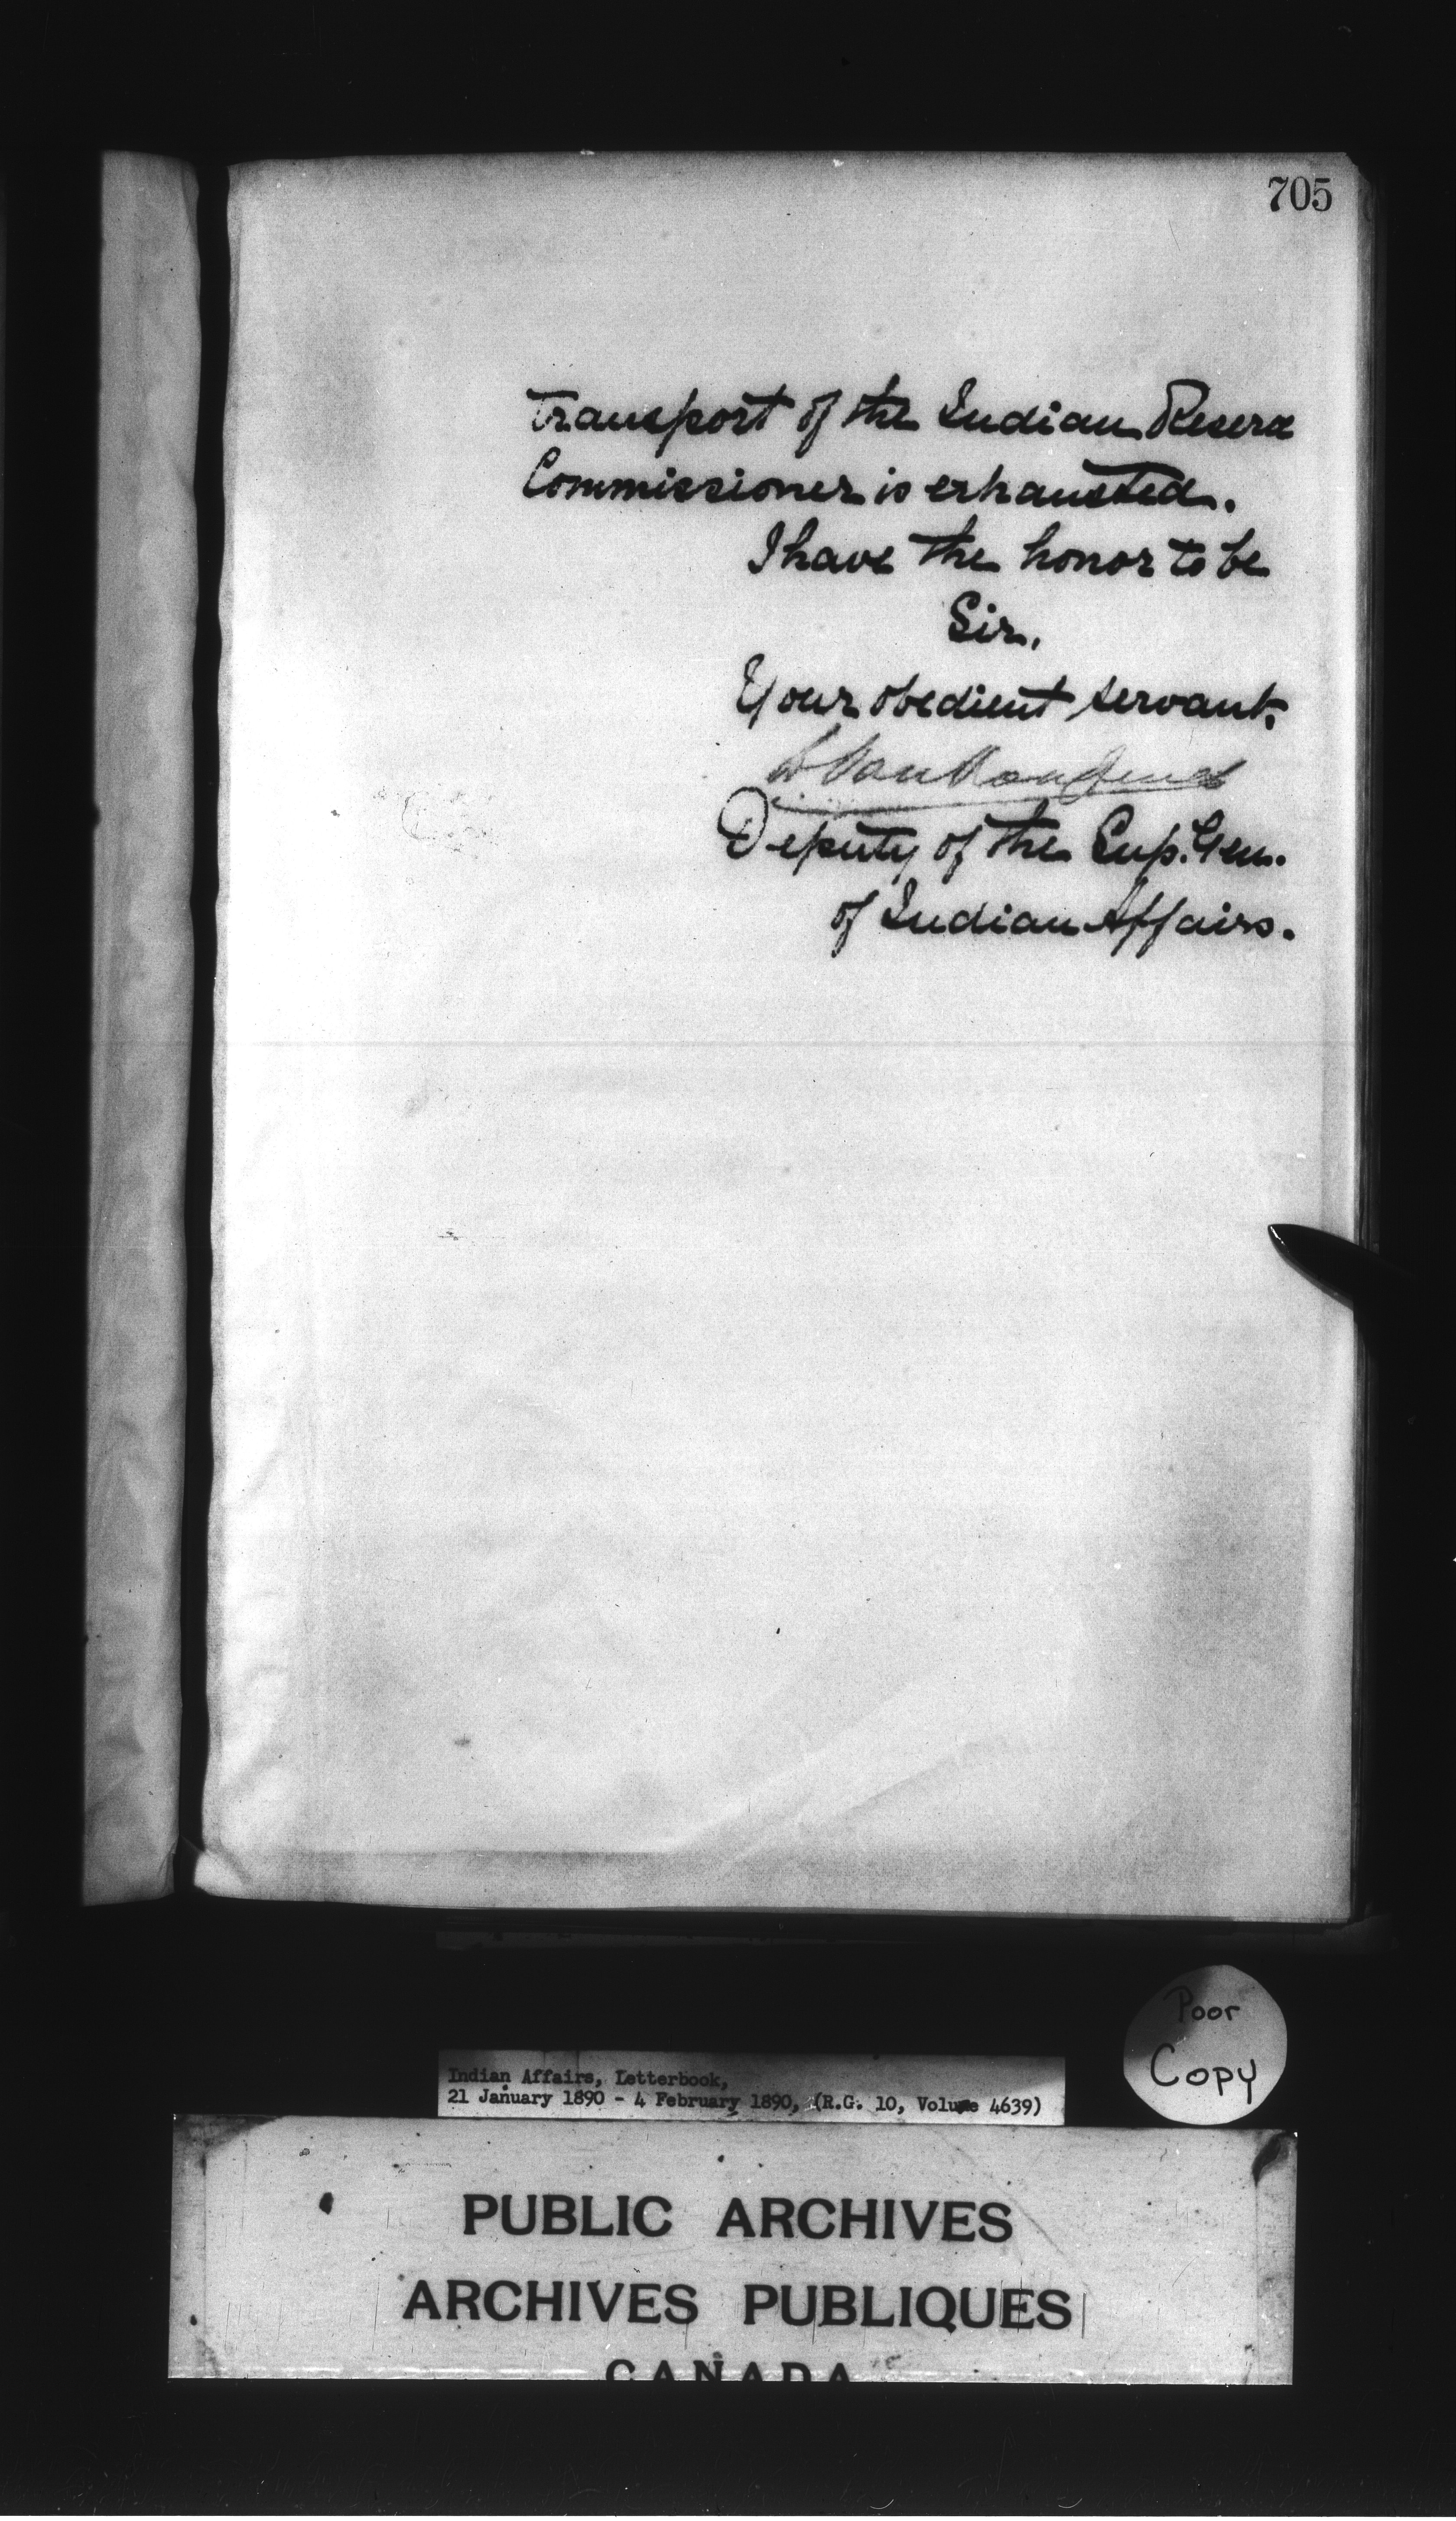 705
Transport of the Indian Reserve
Commissioner is exhausted.
I have the honor to be
Sir,
Your obedient servant,
L Vankoughnet
Deputy of the Sup. Gen.
of Indian Affairs.
Poor
Copy
Indian Affairs, Letterbook,
21 January 1890 - 4 February 1890, (R.G. 10, Volume 4639)
PUBLIC ARCHIVES
ARCHIVES PUBLIQUES
CANADA